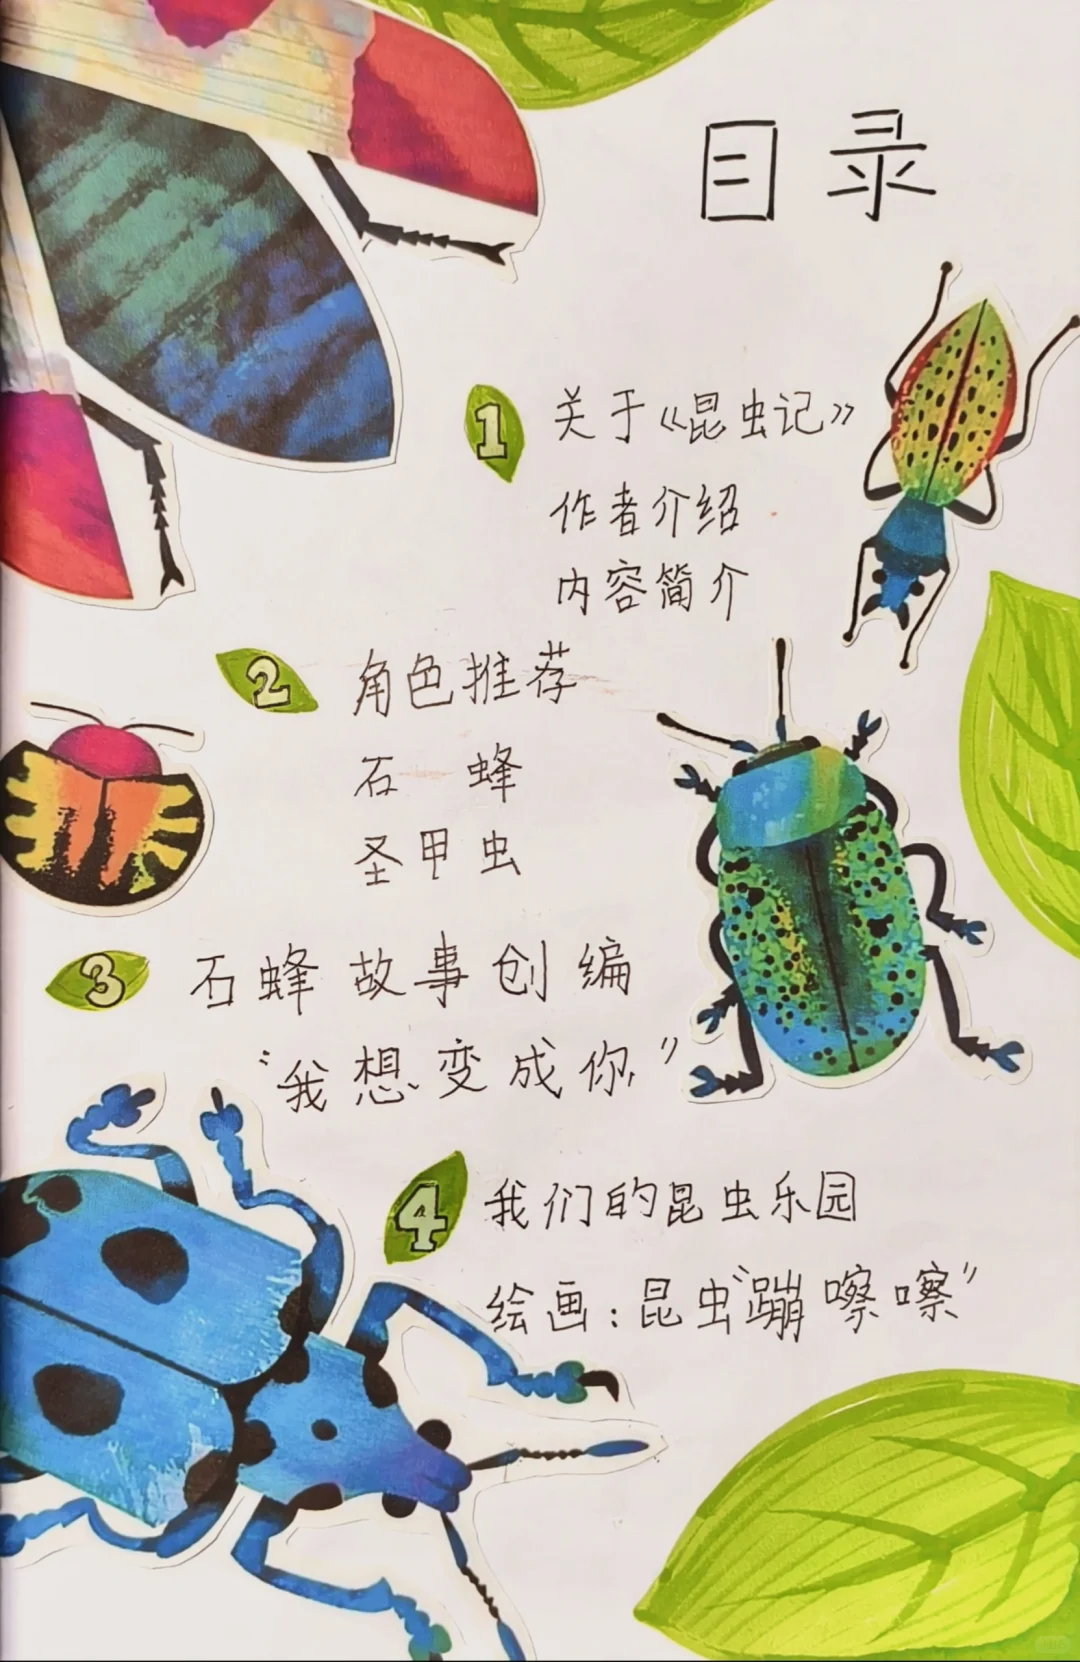 目录
1 关于《昆虫记》
作者介绍
内容简介
2 角色推荐
石 蜂
圣甲虫
3 石蜂故事创编
“我想变成你”
4 我们的昆虫乐园
绘画:昆虫“蹦嚓嚓”